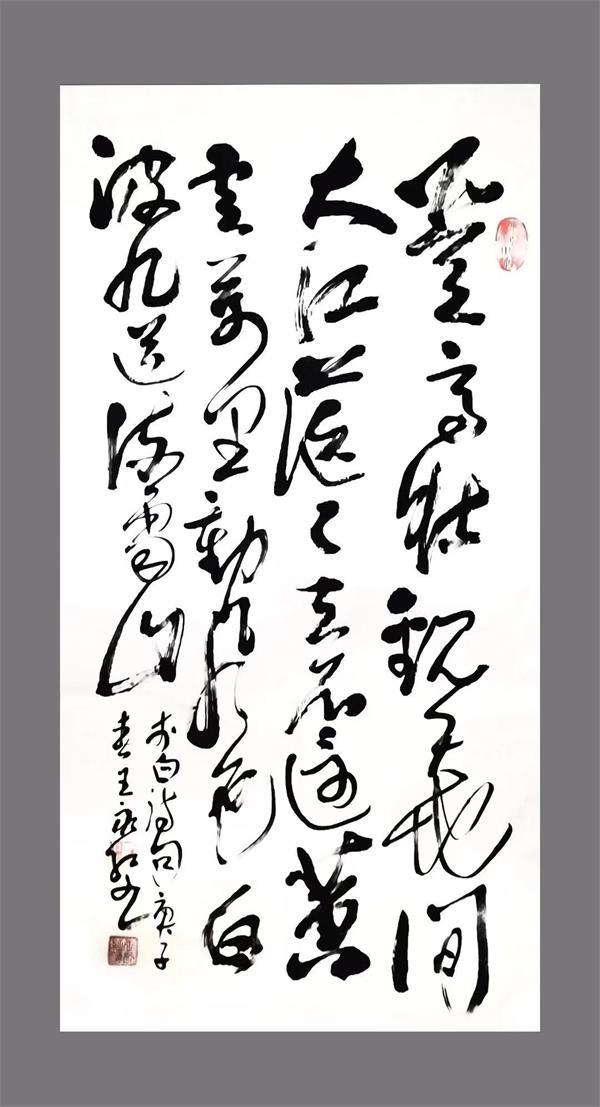 登高壮觀天地間
大江茫々去不還黄
雲萬里動風色白
波九道流雪山
李白詩句庚子
春王